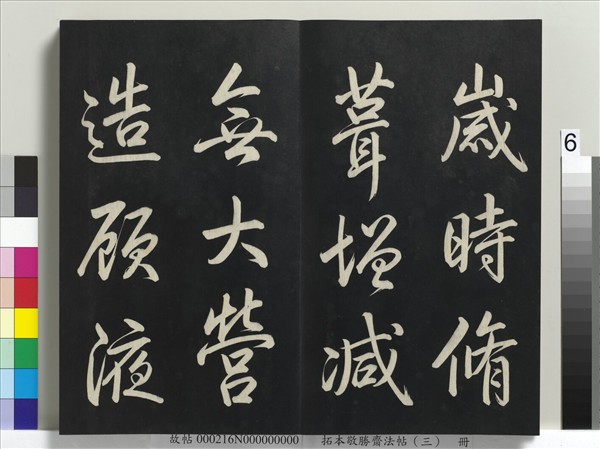 歲時脩
葺增減
無大營
造顧液
6
故帖 000216N000000000 拓本敬勝齋法帖(三) 冊